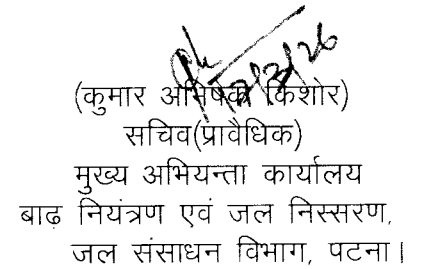 12/3/26
(कुमार अभिषेक किशोर)
सचिव(प्रावैधिक)
मुख्य अभियन्ता कार्यालय
बाढ़ नियंत्रण एवं जल निस्सरण,
जल संसाधन विभाग, पटना।